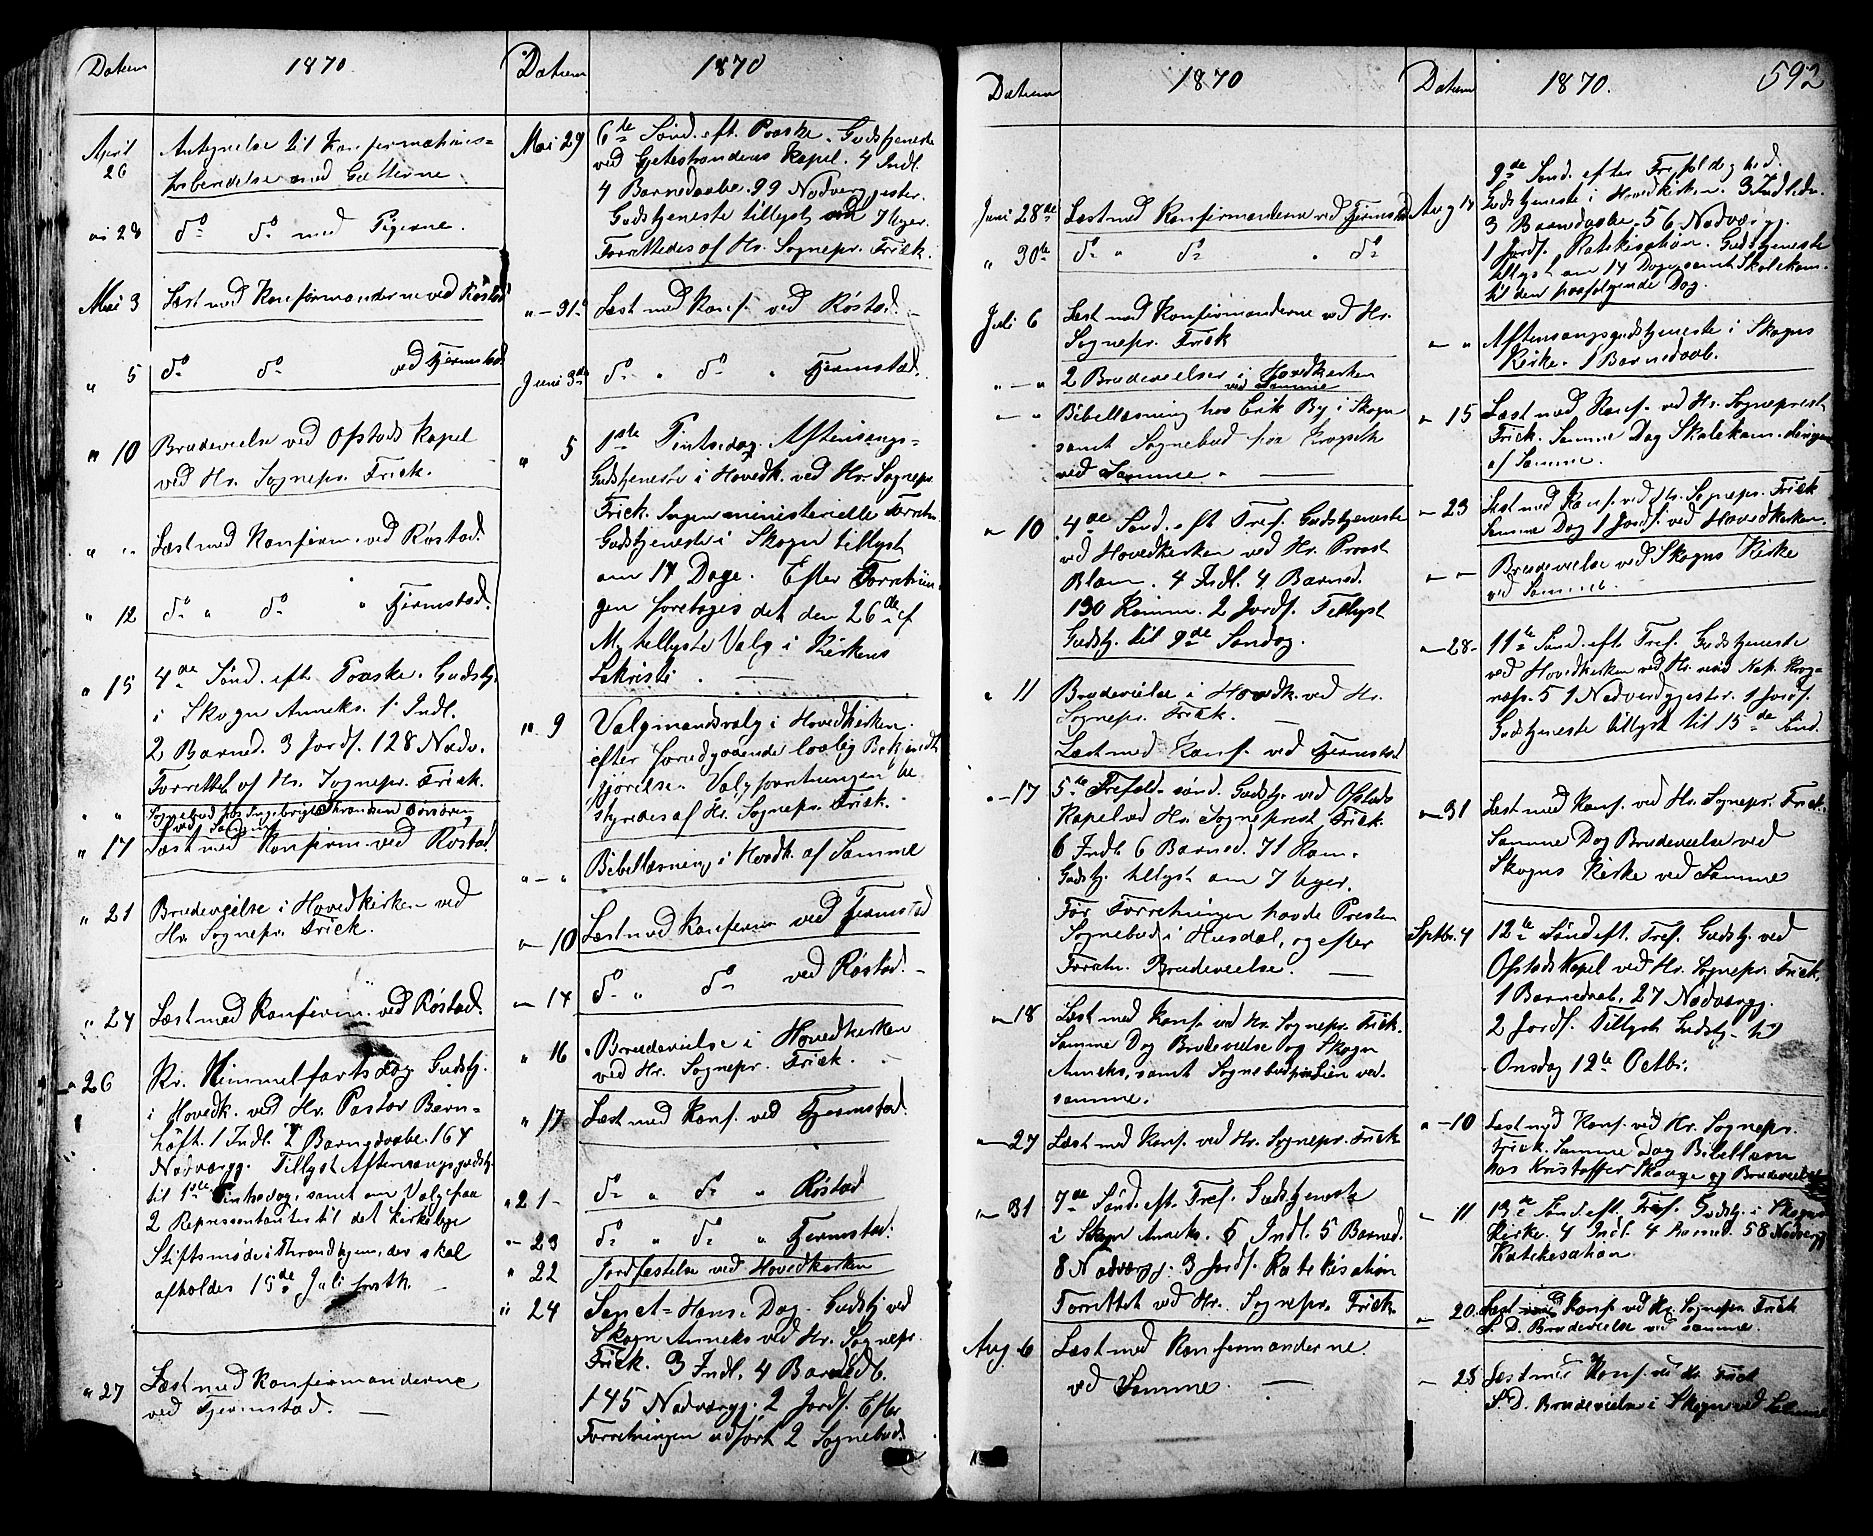 Datum 1870
April 26 Antegnelse til Konfirmations=
forberedelse med Gutterne.
" 28 do do med Pigerne.
Mai 3 Læst med Konfirmanderne ved Røstad
" 5 do do ved Fjermstad
" 10 Brudevielse ved Ofstads Kapel
ved Hr. Sognepr. Frick.
" " Læst med Konfirm. ved Røstad.
" 12 do " do " Fjermstad.
" 15 4de Sønd. eft. Paaske. Gudstj.
i Skogn Anneks. 1 Indl.
2 Barned. 3 Jordf. 128 Nadv.
Forrettet af Hr. Sognepr. Frick.
" " Sognebud hos Ingebrigt
ved Samme
" 17 Læst med Konfirm. ved Røstad
" 21 Brudevielse i Hovedkirken ved
Hr. Sognepr. Frick.
" 24 Læst med Konfirm. ved Røstad.
" 26 Kr. Himmelfartsdag Gudstj.
i Hovedk. ved Hr. Pastor Bern=
høft. 1 Indl. 2 Barnedaabe. 164
Nadvergj. Tillyst Aftensangsgudstj.
til 1ste Pintsedag, samt om Valg paa
2 Repræsentanter til det kirkelige
Stiftsmøde i Throndhjem, der skal
afholdes 15de Juli førstk.
" 27 Læst med Konfirmanderne
ved Fjermstad.
Datum 1870
Mai 29 6te Sønd. eft. Paaske. Gudstjeneste
ved Kapel. 4 Indl.
4 Barnedaabe. 99 Nadvergjester.
Gudstjeneste tillyst om 7 Uger.
Forrettedes af Hr. Sognepr. Frick.
" - 31te Læst med Konf. ved Røstad.
Juni 3die do " do " Fjermstad.
" 5 1ste Pintsedag. Aftensangs=
Gudstjeneste i Hovedk. ved Hr. Sognepr.
Frick. Ingen ministerielle Forretn.
Gudstjeneste i Skogn tillyst
om 14 Dage. Efter Forretnin=
gen foretages det den 26de i f.
M. tillyste Valg i Kirkens
Sakristi.
" 9 Valgmandsvalg i Hovedkirken.
efter foredgaaende lovlig Bekjendt
gjørelse. Valgforretningen be
styredes af Hr. Sognepr. Frick.
" - " Bibellæsning i Hovdk. af Samme
" 10 Læst med Konfirm ved Fjermstad
- 14 do " do ved Røstad.
" 16 Brudevielse i Hovedkirken
ved Hr. Sognepr. Frick.
" 17 Læst med Konf. ved Fjermstad.
" 21 - do " do " Røstad
- 23 do " do " Fjermstad.
" 22 Jordfæstelse ved Hovedkirken
" 24 Sanct=Hans-Dag. Gudstj. ved
Skogn Anneks ved Hr. Sognepr.
Frick. 3 Indl. 4 Barnedb.
145 Nadvergj. 2 Jordf. Efter
Forretningen udført 2 Sognebud.
Datum 1870
Juni 28de Læst med Konfirmanderne ved Fjermstad
" 30te do " do " do
Juli 6 Læst med Konfirmanderne ved Hr.
Sognepr. Frick
" - " 2 Brudevielser i Hovdkirken
ved Samme
" - " Bibellæsning hos Erik By i Skogn
samt Sognebud paa
ved Samme.
- 10 4de Sønd. eft Tref. Gudstjeneste
ved Hovedkirken ved Hr. Provst
Blom. 4 Indl. 4 Barned.
130 Komm. 2 Jordf. Tillyst
Gudstj. til 9de Søndag.
" 11 Brudevielse i Hovedk. ved Hr.
Sognepr. Frick.
Læst med Konf. ved Fjermstad
" - 17 5te Trefold. sønd. Gudstj. ved Ofstads
Kapel ved Hr. Sogneprest Frick.
6 Indl. 6 Barned. 71 Kom.
Gudstj. tillyst om 7 Uger.
Før Forretningen havde Presten
Sognebud i Husdal, og efter
Forretn. Brudevielse.
- 18 Læst med Konf. ved Hr. Sognepr. Frick.
Samme Dag Brudevielse og Skogn
Anneks, samt Sognebud paa Lien ved
samme.
- 27 Læst med Konf. ved Hr. Sognepr. Frick
- 31 7de Sønd. eft. Tref. Gudstjeneste
i Skogn Anneks. 5 Indl. 5 Barned.
8 Nadvergj. 3 Jordf. Katekisation
Forrettet ved Hr. Sognepr. Frick
Aug. 6 Læst med Konfirmanderne
ved Samme.
Datum 1870. 592
Aug 14 9de Sønd. efter Trefoldighed.
Gudstjeneste i Hovedkirken. 3 Indledn.
3 Barnedaabe. 56 Nadvergj.
1 Jordf. Katekisation. Gudstjeneste
tillyst om 14 Dage, samt Skolekom.
til den paafølgende Dag.
- " Aftensangsgudstjeneste i Skogns
Kirke. 1 Barnedaab.
- 15 Læst med Konf. ved Hr. Sogneprest
Frick. Samme Dag Skolekom.
af Samme.
- 23 Læst med Konf. ved Hr. Sognepr. Frick
Samme Dag 1 Jordf. ved Hovedkirken.
- - Brudevielse ved Skogns Kirke
ved Samme.
- 28 - 11te Sønd. eft Tref. Gudstjeneste
ved Hovedkirken ved Hr.
51 Nadvergjester. 1 Jordf.
Gudstjeneste tillyst til 15de Sønd.
- 31 Læst med Konf. ved Hr. Sognepr. Frick.
Samme Dag Brudevielse ved
Skogns Kirke ved Samme
Sptbr. 4 12te Sønd eft. Tref. Gudstj. ved
Ofstads Kapel ved Hr. Sognepr. Frick.
1 Barnedaab. 27 Nadvergj.
2 Jordf. Tillyst Gudstj. til
Onsdag 12te Octbr.
" - 10 Læst med Konf. ved Hr. Sognepr.
Frick. Samme Dag Bibellæsn
hos Kristoffer og Brudevielse
- 11 13de Sønd. eft. Tref. Gudstj. i Skogns
Kirke. 4 Indl. 4 Barned. 58 Nadvergj
Katekisation
- 20. Læst med Konf. ved Hr. Sognepr. Frick
S. D. Brudevielse ved samme.
- 25 Læst med Konf. ved Hr. Frick
S. D. Brudevielse i Skogn ved Samme